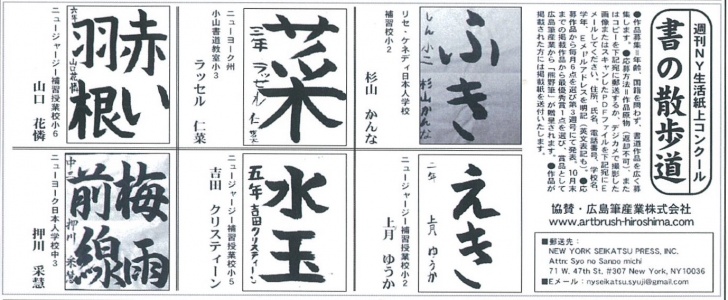 週刊NY生活紙上コンクール
書の散歩道
協賛・広島筆産業株式会社
www.artbrush-hiroshima.com
■郵送先：
NEW YORK SEIKATSU PRESS, INC.
Attn: Syo no Sanpo michi
71 W. 47th St. #307 New York, NY10036
■Eメール：nyseikatsu.syuji@gmail.com
●作品募集＝年齢、国籍を問わず、書道作品を広く募
集します。●応募方法＝作品原物（返却不可）、また
はコピーを下記宛に郵送するか、デジカメで撮影した
画像またはスキャンしたPDFファイルを下記宛にE
メールしてください。住所、氏名、電話番号、学校名、
学年、Eメールアドレスを明記（英文表記も）。●応
募作品から毎月6点を選び第3週号にて発表。10月末
までの掲載作品から最優秀賞1点を選び、賞品として
広島筆産業から「熊野筆」が贈呈されます。●作品が
掲載された方には掲載紙を送付いたします。
ふき
しん 小二 杉山かんな
リセ・ケネディ日本人学校
補習校小2
杉山 かんな
えき
二年 上月 ゆうか
ニュージャージー補習授業校小2
上月 ゆうか
菜
三年 ラッセル 仁菜
ニューヨーク州
小山書道教室小3
ラッセル 仁菜
水玉
五年 吉田クリスティーン
ニュージャージー補習授業校小5
吉田 クリスティーン
赤い
羽根
六年 山口花憐
ニュージャージー補習授業校小6
山口 花憐
梅雨
前線
中三 押川 采慧
ニューヨーク日本人学校中3
押川 采慧